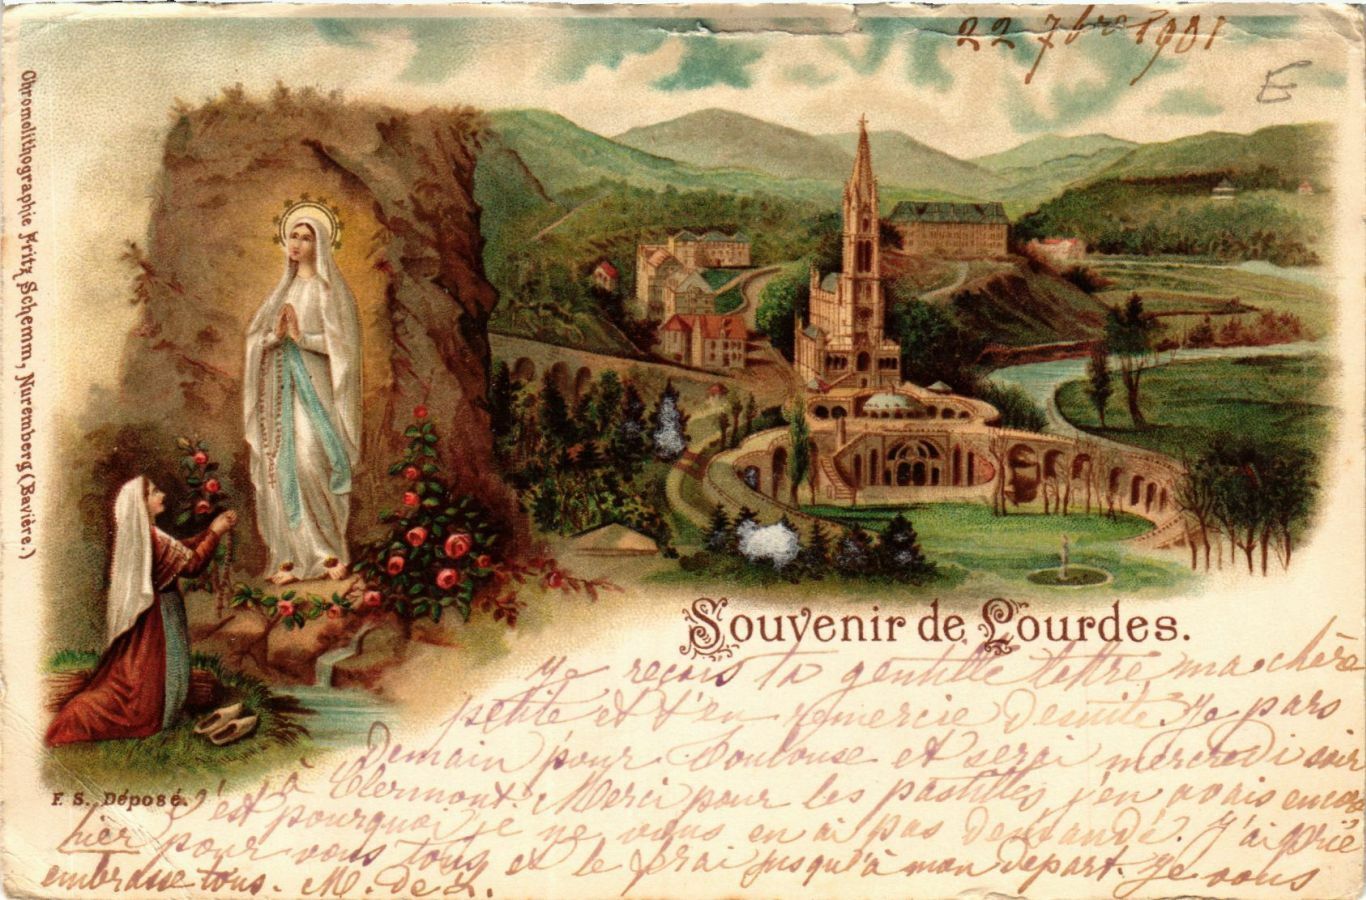 22 7bre 1901
E
Chromolithographie Fritz Schemm, Nuremberg (Bavière.)
Souvenir de Lourdes.
F. S. Déposé.
Je reçois ta gentille lettre ma chère
petite et t'en remercie desuite. Je pars
Demain pour Toulouse et serai mercredi soir
à Clermont. Merci pour les pastilles j'en avais encore
c'est pourquoi je ne vous en ai pas demandé. J'ai prié
hier pour vous tous et le ferai jusqu'à mon départ. Je vous
embrasse tous. M. de L.